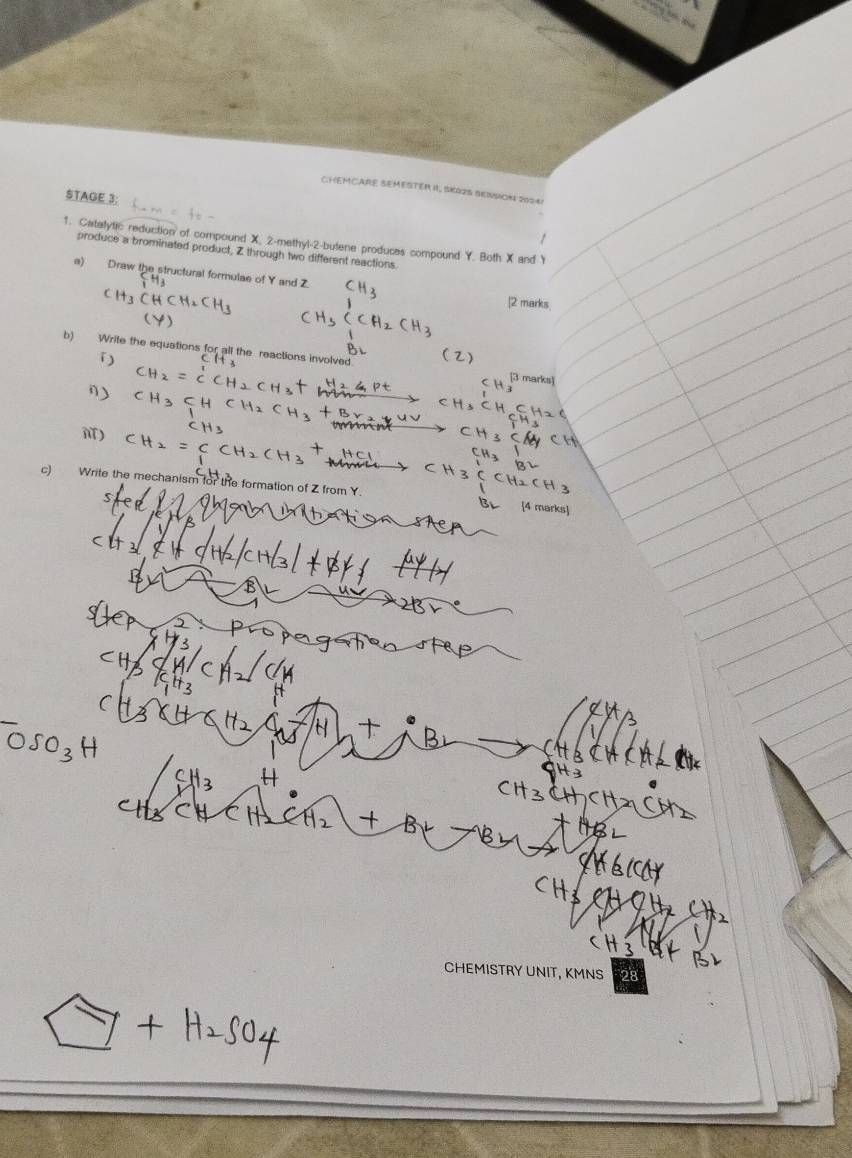 CHEMCARE SEMESTER II, SK025 SESSION 2024/
STAGE 3:
1. Catalytic reduction of compound X, 2-methyl-2-butene produces compound Y. Both X and Y
produce a brominated product, Z through two different reactions.
a) Draw the structural formulae of Y and Z.
[2 marks
CH3
CH3 CH CH2 CH3
(Y)
CH3
CH3 C CH2 CH3
Br
(Z)
b) Write the equations for all the reactions involved.
[3 marks]
i) CH3
CH2 = C CH2 CH3 + H2 & Pt
CH3
CH3 CH CH2
ii) CH3 CH CH2 CH3 + Br2 uv
CH3
CH3
CH3 C CH
Br
iii) CH2 = C CH2 CH3 + HCl
CH3
CH3
CH3 C CH2 CH3
Br
c) Write the mechanism for the formation of Z from Y.
[4 marks]
initiation step
Br Br uv 2Br•
Step 2: propagation step
CH3
CH3 CH CH2 C H + •Br
H
H
-OSO3H
CH3
CH3 CH CH2 CH2
+ HBr
CH3
CH3 CH CH2 CH2 + Br - Br
CH3 CH CH2 CH2
CH3 Br
CHEMISTRY UNIT, KMNS 28
+ H2SO4